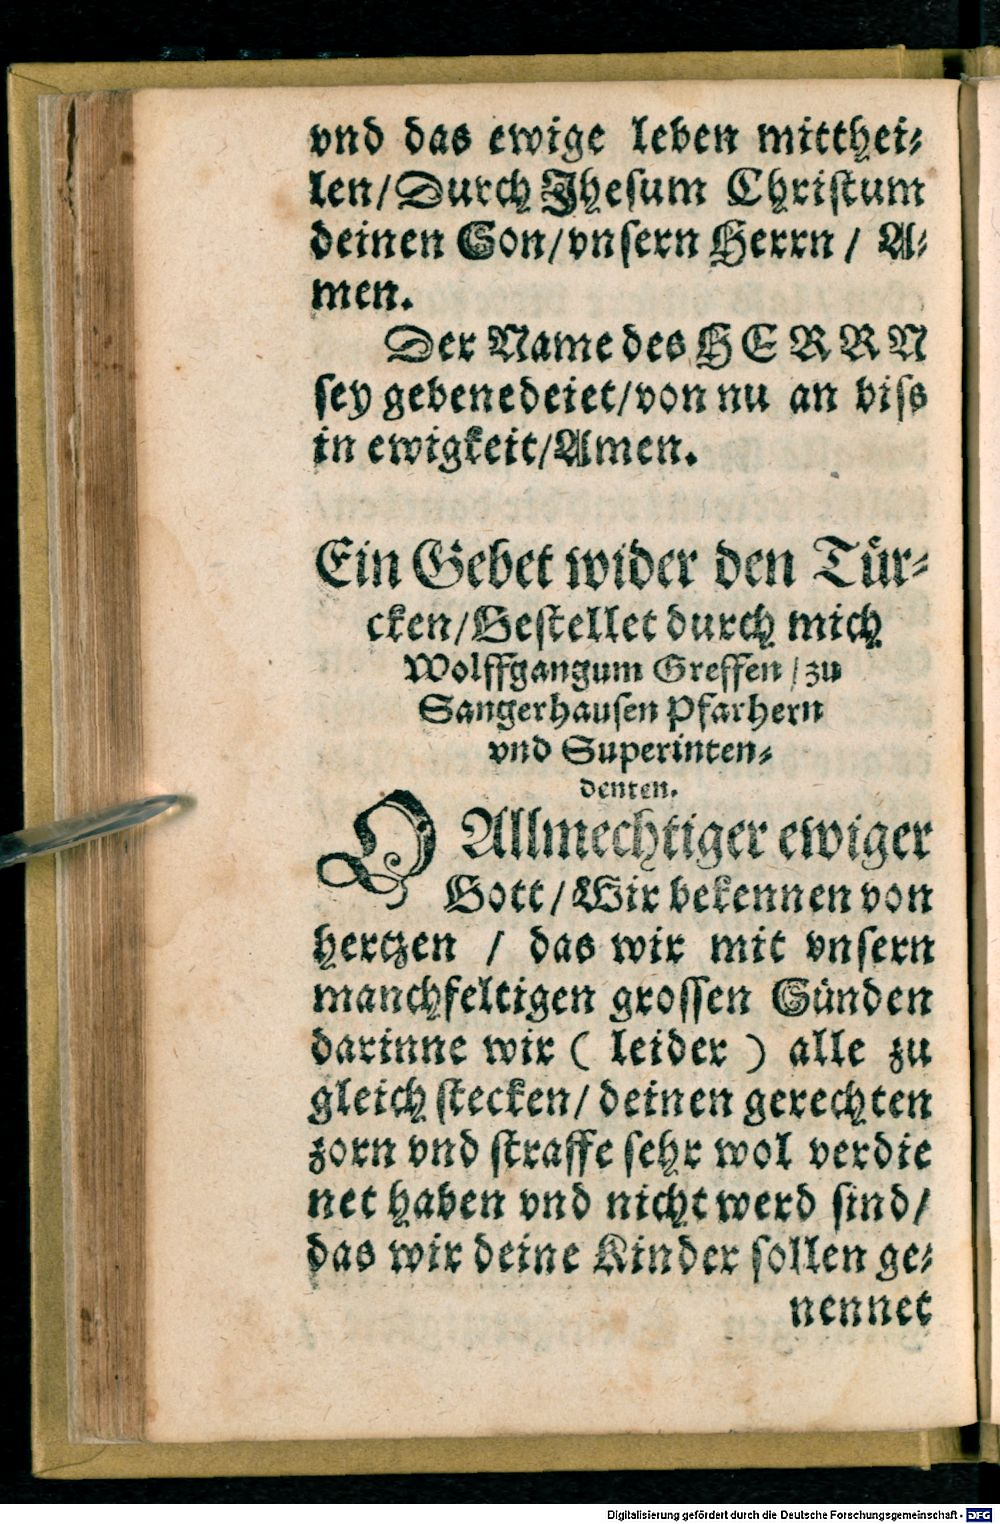 vnd das ewige leben mitthei⸗
len/Durch Jhesum Christum
deinen Son/vnsern Herrn / A⸗
men.
Der Name des HERRN
sey gebenedeiet/von nu an biss
in ewigkeit/Amen.
Ein Gebet wider den Tür⸗
cken/Gestellet durch mich
Wolffgangum Greffen /zu
Sangerhausen Pfarhern
vnd Superinten⸗
denten.
O Allmechtiger ewiger
Gott/Wir bekennen von
hertzen / das wir mit vnsern
manchfeltigen grossen Sünden
darinne wir ( leider ) alle zu
gleich stecken/deinen gerechten
zorn vnd straffe sehr wol verdie
net haben vnd nicht werd sind/
das wir deine Kinder sollen ge⸗
nennet
Digitalisierung gefördert durch die Deutsche Forschungsgemeinschaft - DFG